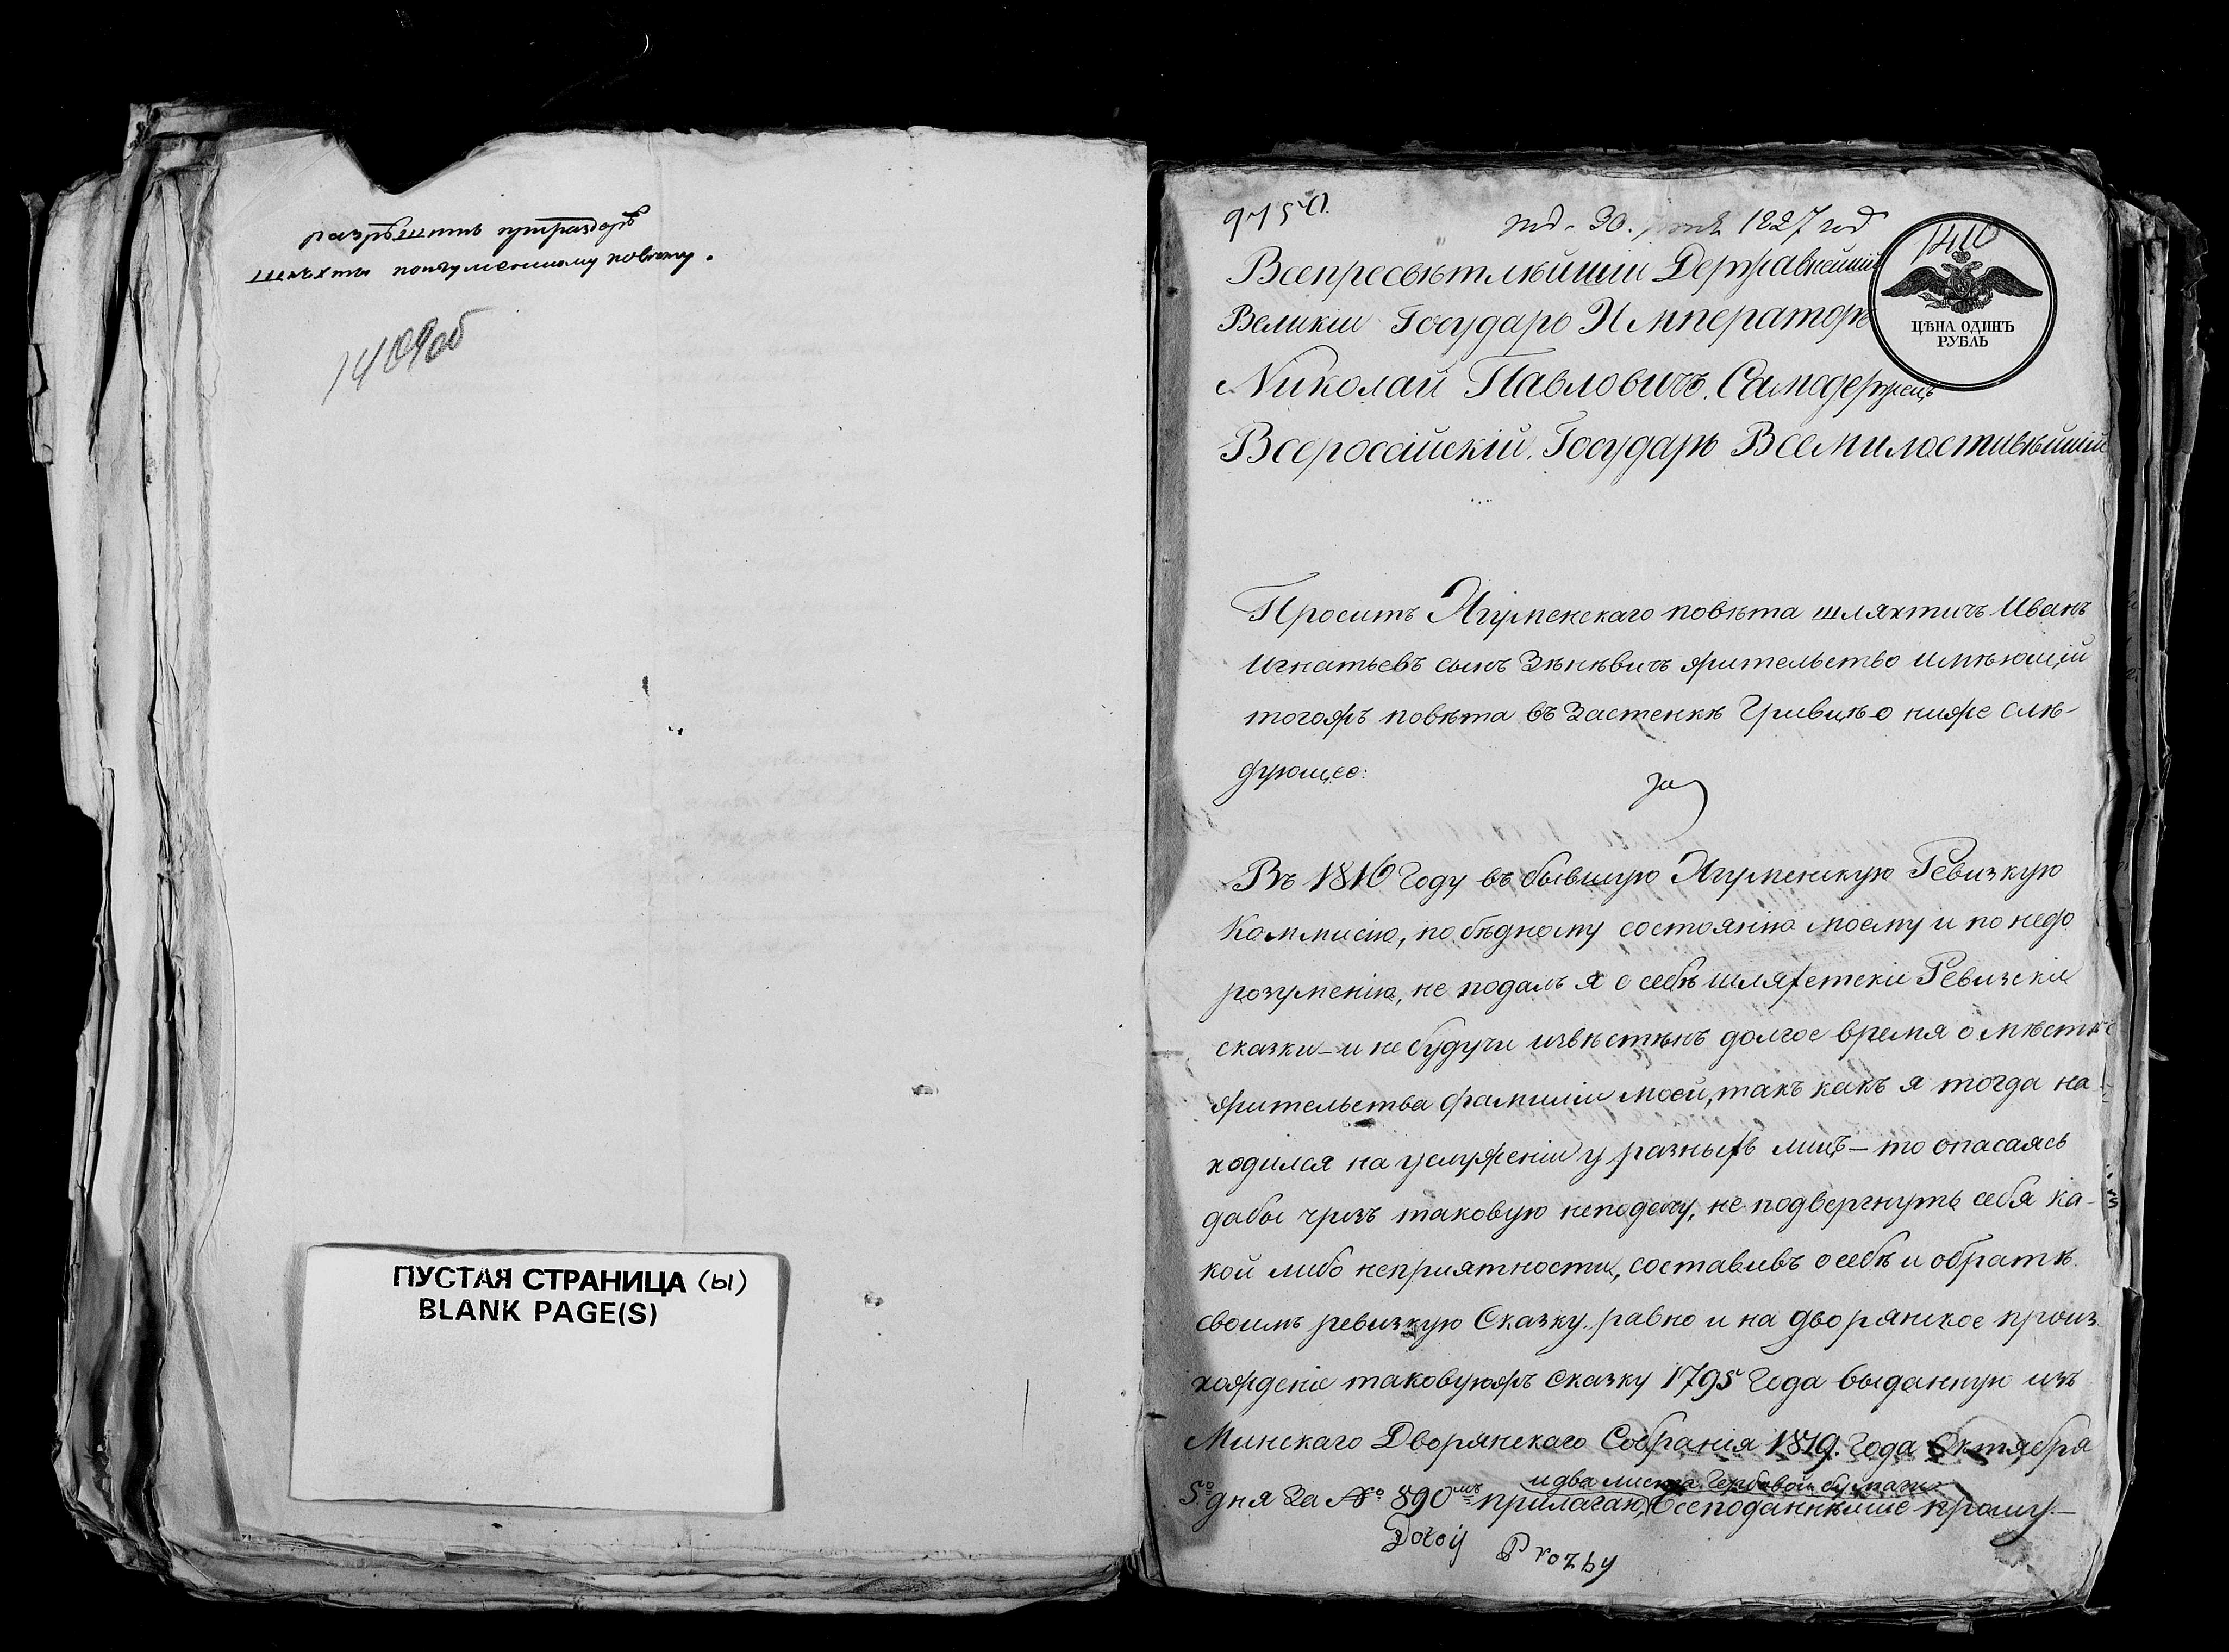 разрѣшить приразборѣ
шляхты поигуменскому повѣту.
1409об
9750.
30. 1827 год
1410
ЦѢНА ОДИНЪ
РУБЛЬ
Всепресвѣтлѣйшии Державнѣйшій
Великіи Государь Императоръ
Николай Павловичъ. Самодержецъ
Всеросійскій, Государь Всемилостивѣйшій
Проситъ Игуменскаго повѣта шляхтичъ Иванъ
Игнатьевъ сынъ Зѣнѣвичъ жительство имѣющій
тогожъ повѣта въ Застенкѣ Гривцѣ о ниже слѣ-
дующее:
Въ 1816 Году въ бывшую Игуменскую Ревизкую
Коммисію, по бѣдному состоянію моему и по недо
розуменію, не подалъ я о себѣ шляхетскіе Ревизскіе
сказки – и не будучи извѣстѣнъ долгое время о мѣстѣ
жительства фамиліи моей, такъ какъ я тогда на-
ходился на услуженіи у разныхъ лицъ – то опасаясь
дабы чрезъ таковую неподачу, не подвергнуть себя ка-
кой либо непріятности, составивъ о себѣ и обратѣ
своимъ ревизкую Сказку. равно и на дворянское проиs
хожденіе таковуюжъ сказку 1795 Года выданную изъ
Минскаго Дворянскаго Собранія 1819. Года Октября
и два листа Гербовой бумаги
5го дня За № 890мъ прилагаю, Всеподаннѣише прошу. –
Dotoy Prozby
ПУСТАЯ СТРАНИЦА (Ы)
BLANK PAGE(S)